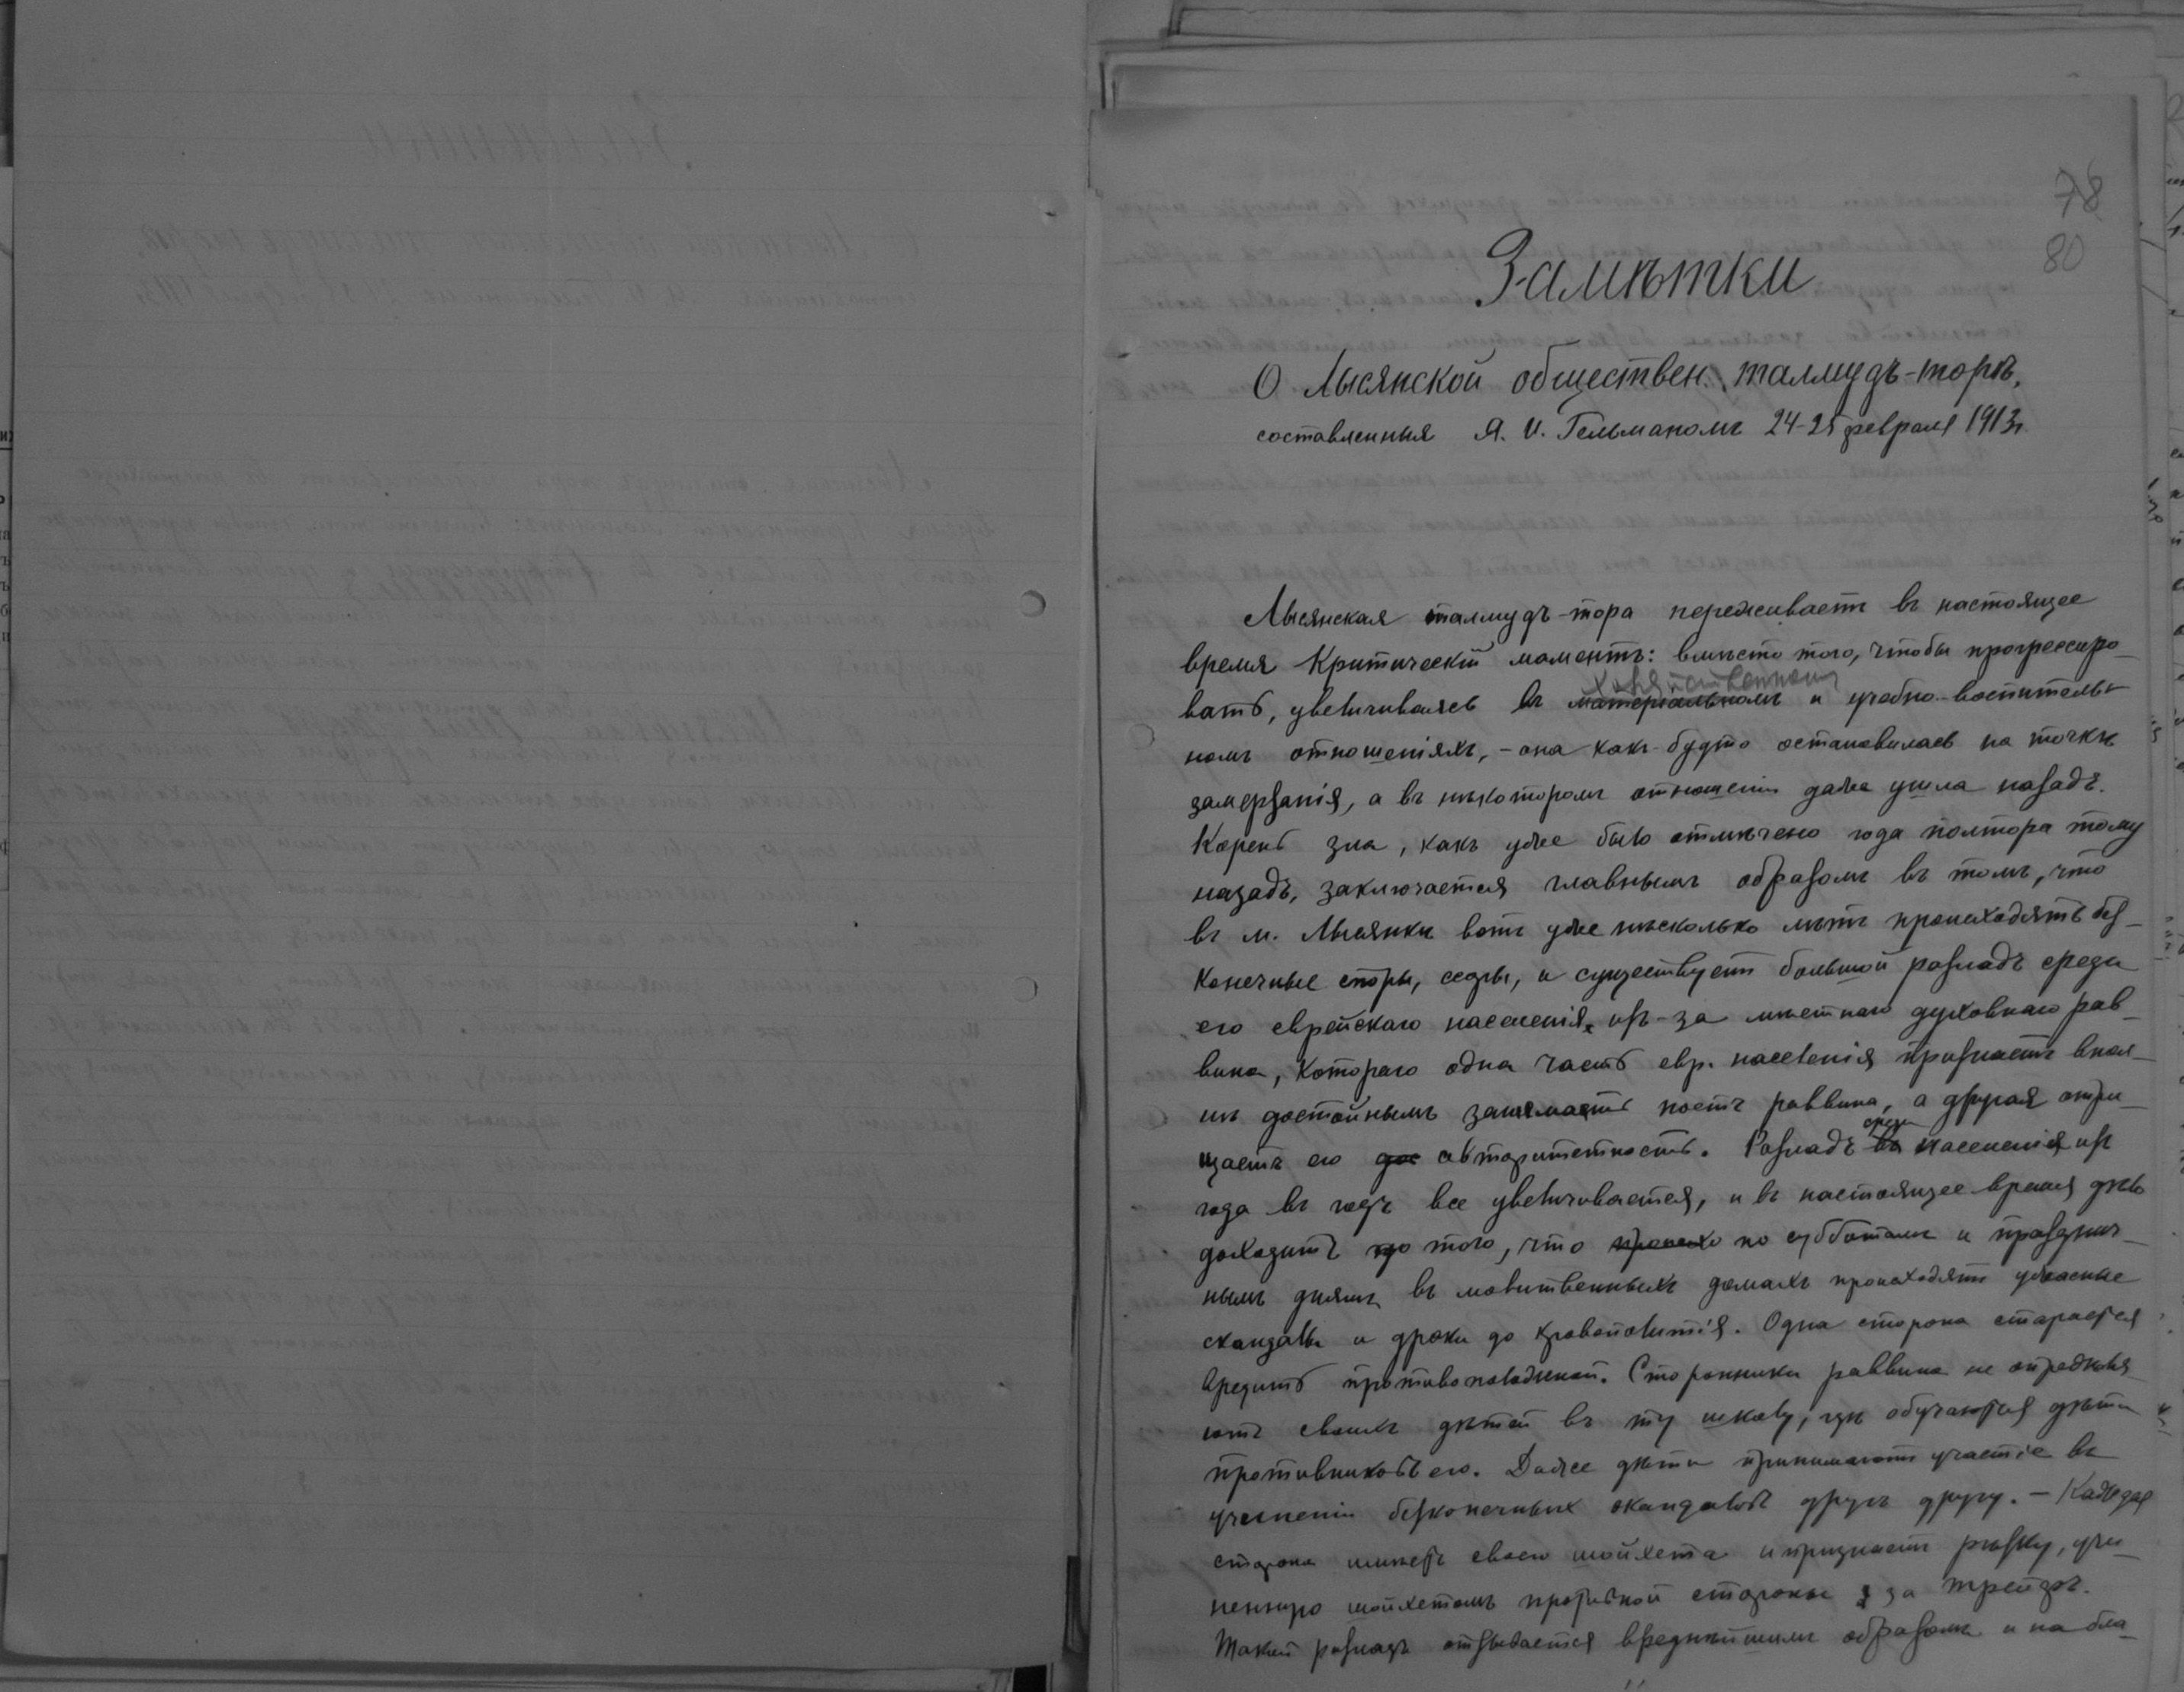 78
80
Замѣтки
О Лысянской обществен. талмудъ-торѣ,
составленныя Я. И. Гельманомъ 24-25 февраля 1913 г.
Лысянская талмудъ-тора переживаетъ въ настоящее
время критическій моментъ: вмѣсто того, чтобы прогрессиро-
хозяйственномъ
вать, увеличиваясь въ матеріальномъ и учебно-воспитель-
номъ отношеніяхъ, - она какъ-будто остановилась на точкѣ
замерзанія, а въ нѣкоторомъ отношеніи даже ушла назадъ.
Корень зла, какъ уже было отмѣчено года полтора тому
назадъ, заключается главнымъ образомъ въ томъ, что
въ м. Лысянкѣ вотъ уже нѣсколько лѣтъ происходятъ без-
конечные споры, ссоры, и существуетъ большой разладъ среди
его еврейскаго населенія, изъ-за мѣстнаго духовнаго рав-
вина, котораго одна часть евр. населенія признаетъ впол-
нѣ достойнымъ занимать постъ раввина, а другая отри-
среди
цаетъ его дос авторитетность. Разладъ въ населенія изъ
года въ годъ все увеличивается, и въ настоящее время дѣло
доходитъ до того, что происхо по субботамъ и празднич-
нымъ днямъ въ молитвенныхъ домахъ происходятъ ужасные
скандалы и драки до кровополитія. Одна сторона старается
вредить противоположной. Сторонники раввина не опредѣля-
ютъ своихъ дѣтей въ ту школу, гдѣ обучаются дѣти
противниковъ его. Даже дѣти принимаютъ участіе въ
учиненіи безконечныхъ скандаловъ другъ другу. - Каждая
сторона имѣетъ своего шойхета и признаетъ рѣзку, учи-
ненную шойхетомъ противной стороны за трейфъ.
Такой разладъ отзывается вреднѣйшимъ образомъ и на бла-